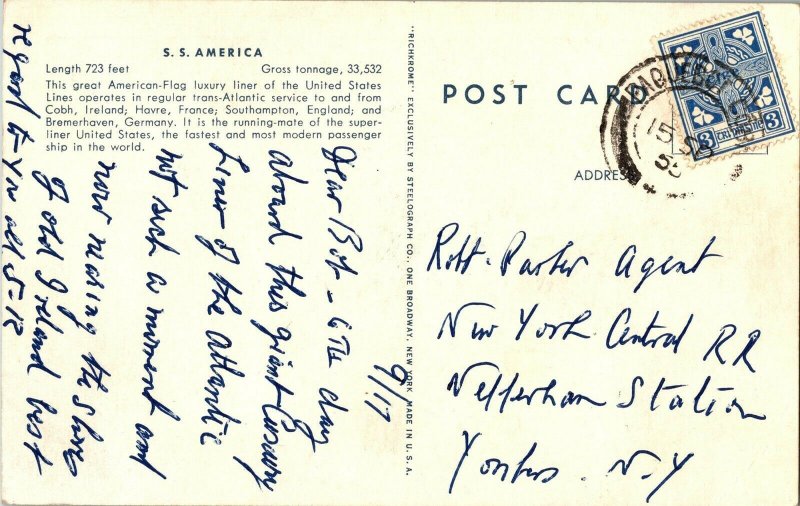 S. S. AMERICA
Length 723 feet Gross tonnage, 33,532
This great American-Flag luxury liner of the United States
Lines operates in regular trans-Atlantic service to and from
Cobh, Ireland; Havre, France; Southampton, England; and
Bremerhaven, Germany. It is the running-mate of the super-
liner United States, the fastest and most modern passenger
ship in the world.
9/17
Dear Bob - 6TH day
aboard this giant Luxury
Liner of the Atlantic
not such a moment and
now nearing the shores
of old Ireland best
regard to You all
"RICHKROME" EXCLUSIVELY BY STEELOGRAPH CO., ONE BROADWAY, NEW YORK MADE IN U.S.A.
POST CARD
ADDRESS
15
3 3
Robt. Parker Agent
New York Central RR
Nepperhan Station
Yonkers. N.Y